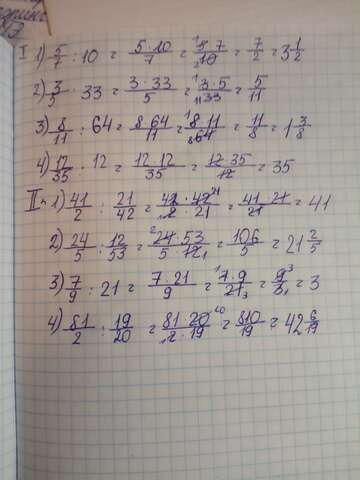 I 1) 5/7 : 10 = 5·10/7 = 5·7/10 = 7/2 = 3 1/2
2) 3/5 · 33 = 3·33/5 = 3·5/33 = 5/11
3) 8/11 : 64 = 8 64/11 = 8·11/64 = 11/8 = 1 3/8
4) 12/35 : 12 = 12·12/35 = 12·35/12 = 35
II 1) 41/2 : 21/42 = 41·42/2·21 = 41·21/21 = 41
2) 24/5 : 12/53 = 24·53/5·12 = 106/5 = 21 2/5
3) 7/9 : 21 = 7·21/9 = 7·9/21 = 9/3 = 3
4) 81/2 : 19/20 = 81·20/2·19 = 810/19 = 42 6/19